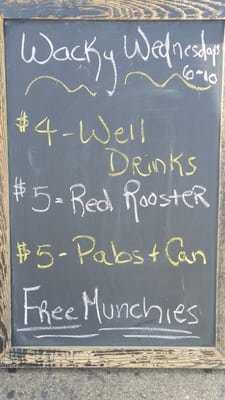 Wacky Wednesdays
6-10
$4 - Well
Drinks
$5 = Red Rooster
$5 - Pabst Can
Free Munchies